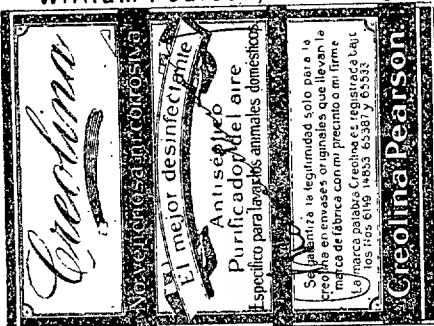 William Pearson
Creolina
No venenosa ni corrosiva
El mejor desinfectante
Antiséptico
Purificador del aire
Específico para lavar los animales domésticos
Se garantiza la legitimidad solo para la
creolina en envases originales que llevan la
marca de fábrica con mi precinto o mi firme
La marca palabra Creolina es registrada bajo
los Nos 6119 14853 65387 y 65533
Creolina Pearson